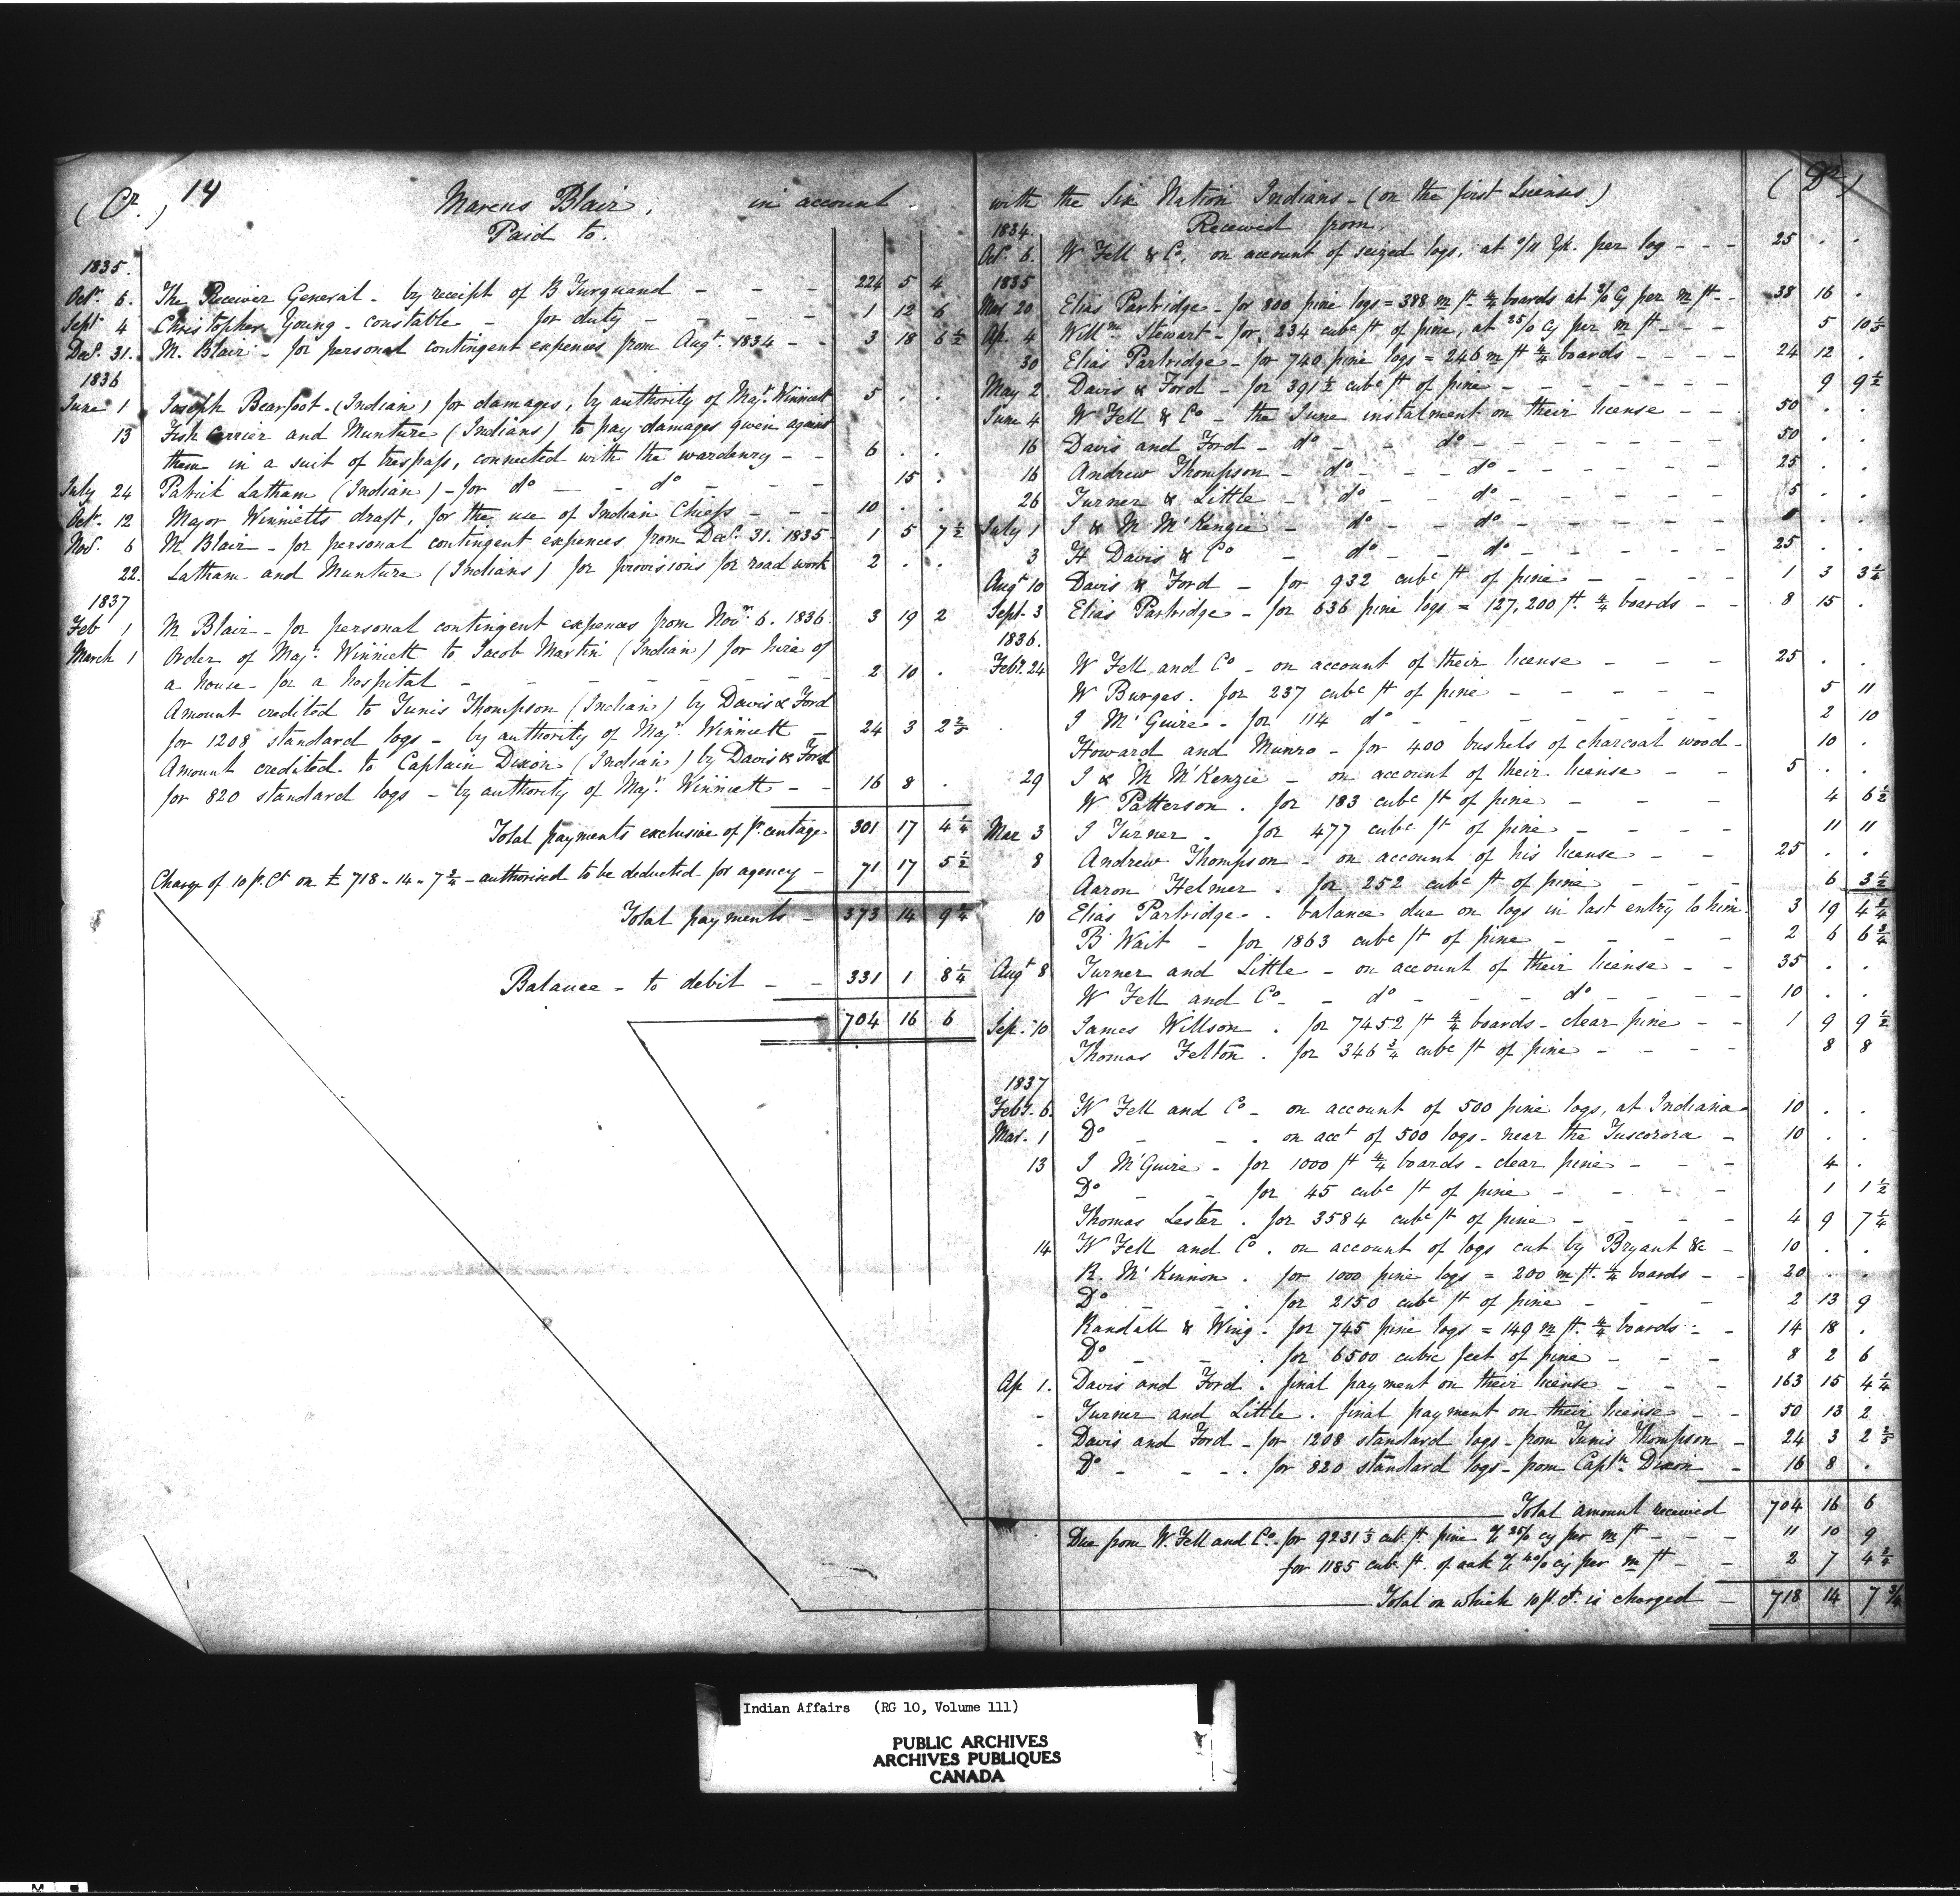 (Cr.) 14 Marcus Blair, in account
Paid to.
1835.
Octr. 6. The Receiver General - by receipt of B Turquand - - - 224 5 4
Sept 4 Christopher Young - constable - for duty - - - - 1 12 6
Decr. 31. M. Blair - for personal contingent expences from Augt. 1834 - - 3 18 6 1/2
1836
June 1 Joseph Bearfoot - (Indian) for damages, by authority of Majr. Winniett 5 . .
13 Fish Carrier and Munture (Indians) to pay damages given against
them in a suit of trespass, connected with the wardenry - - 6 . .
July 24 Patrick Latham (Indian) - for do - - do - - - 15 .
Oct. 12 Major Winnietts draft, for the use of Indian Chiefs - - - 10 . .
Nov. 6 M. Blair - for personal contingent expences from Decr. 31. 1835 - 1 5 7 1/2
22. Latham and Munture (Indians) for provisions for road work 2 . .
1837
Feb 1 M Blair - for personal contingent expences from Novr. 6. 1836. 3 19 2
March 1 Order of Majr. Winniett to Jacob Martin (Indian) for hire of
a house for a hospital - - - - - - - 2 10 .
Amount credited to Tunis Thompson (Indian) by Davis & Ford
for 1208 standard logs - by authority of Majr. Winniett - 24 3 2 2/5
Amount credited to Captain Dixon (Indian) by Davis & Ford
for 820 standard logs - by authority of Majr. Winniett - - 16 8 .
Total payments exclusive of pr. centage 301 17 4 1/4
Charge of 10 p. Ct on £ 718 - 14 - 7 3/4 - authorised to be deducted for agency - 71 17 5 1/2
Total payments - 373 14 9 1/4
Balance - to debit - - 331 1 8 1/4
704 16 6
with the Six Nation Indians - (on the first Licenses.) (Dr.)
1834. Received from.
Oct. 6. W Fell & Co. on account of seized logs, at per log - - - 25 . .
1835
Mar 20 Elias Partridge - for 800 pine logs = 388 m ft. 4/4 boards at 2/ Cy per m ft - 38 16 .
Ap. 4 Willm. Stewart - for 234 cubc ft of pine, at 25/ cy per m ft - - - 5 10 1/5
30 Elias Partridge - for 740 pine logs = 246 m ft 4/4 boards - - - - 24 12 .
May 2 Davis & Ford - for 391 1/2 cubc ft of pine - - - - - - 9 9 1/2
June 4 W Fell & Co - the June instalment on their license - - 50 . .
16 Davis and Ford - do - - - do - - - - - - 50 . .
16 Andrew Thompson - do - - - do - - - - - - 25 . .
26 Turner & Little - do - - do - - - - - - 5 . .
July 1 J & M McKenzie - do - - do - - - - - - . .
3 H Davis & Co - do - - do - - - - - - 25 . .
Augt 10 Davis & Ford - for 932 cubc ft of pine - - - - 1 3 3 1/4
Sept. 3 Elias Partridge - for 636 pine logs = 127,200 ft. 4/4 boards - - 8 15 .
1836.
Feby. 24 W Fell and Co - on account of their license - - - 25 . .
W Burges. for 237 cubc ft of pine - - - - - 5 11
J McGuire - for 114 do - - - - - - 2 10
Howard and Munro - for 400 bushels of charcoal wood - 10 .
29 J & M McKenzie - on account of their license - - 5 . .
W Patterson. for 183 cubc ft of pine - - - 4 6 1/2
Mar 3 J Turner. for 477 cubc ft of pine - - - - 11 11
8 Andrew Thompson - on account of his license - - 25 . .
Aaron Helmer. for 252 cubc ft of pine - - - - 6 3 1/2
10 Elias Partridge. balance due on logs in last entry to him. 3 19 4 3/4
B Wait - for 1863 cubc ft of pine - - - - - 2 6 6 3/4
Augt 8 Turner and Little - on account of their license - - 35 . .
W Fell and Co - - do - - - do - - - - 10 . .
Sep. 10 James Willson. for 7452 ft 4/4 boards - clear pine - - 1 9 9 1/2
Thomas Felton. for 346 3/4 cubc ft of pine - - - - 8 8
1837
Feby. 6. W Fell and Co - on account of 500 pine logs, at Indiana 10 . .
Mar. 1 Do - - . on acct of 500 logs - near the Tuscorora - 10 . .
13 J McGuire - for 1000 ft 4/4 boards - clear pine - - - 4 .
Do - - for 45 cubc ft of pine - - - - 1 1 1/2
Thomas Lester. for 3584 cubc ft of pine - - - - 4 9 7 1/4
14 W Fell and Co. on account of logs cut by Bryant &c - 10 . .
R. McKinnon. for 1000 pine logs = 200 m ft. 4/4 boards - - 20 . .
Do - - . for 2150 cubc ft of pine - - - 2 13 9
Randall & Wing. for 745 pine logs = 149 m ft. 4/4 boards - - 14 18 .
Do - - . for 6500 cubic feet of pine - - - 8 2 6
Ap 1. Davis and Ford. final payment on their license - - - 163 15 4 1/4
- Turner and Little. final payment on their license - - 50 13 2
- Davis and Ford - for 1208 standard logs - from Tunis Thompson - 24 3 2 2/5
Do - - - . for 820 standard logs - from Captn. Dixon - 16 8 .
Total amount received 704 16 6
Due from W. Fell and Co. for 9231 1/3 cub. ft pine @ 25/ cy per m ft - - - 11 10 9
for 1185 cub. ft. of oak @ 40/ cy per m ft - - 2 7 4 3/4
Total on which 10 p. ct. is charged - 718 14 7 3/4
Indian Affairs (RG 10, Volume 111)
PUBLIC ARCHIVES
ARCHIVES PUBLIQUES
CANADA